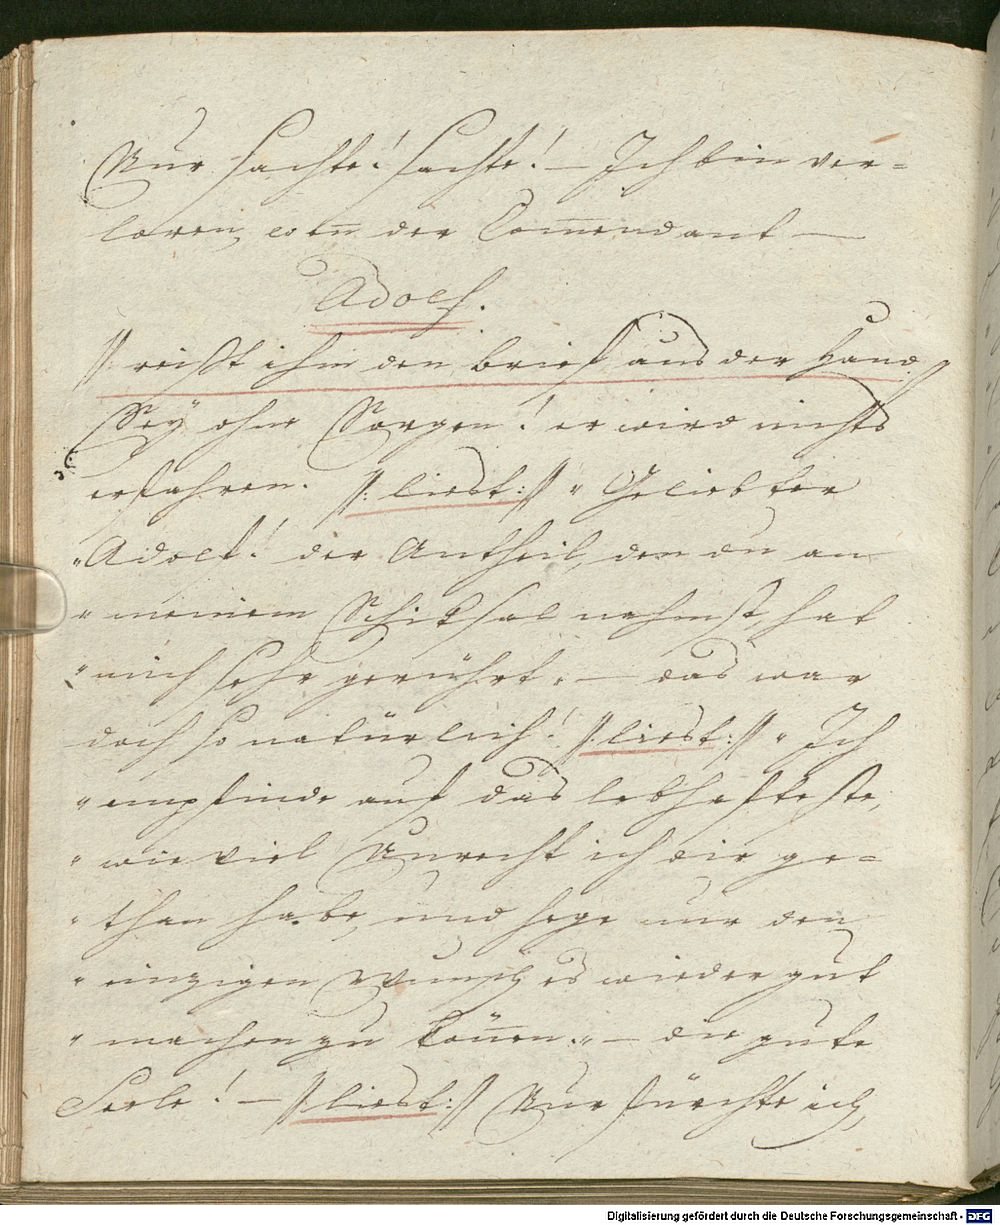 Nur sachte! sachte! — Ich bin ver-
loren, weñ der Com̅endant —
Adolf.
//: reißt ihm den Brief aus der Hand
Sey ohne Sorgen! er wird nichts
erfahren. //: liest: // „Geliebter
„Adolf! der Antheil, den du an
„meinem Schiksal nahmst, hat
„mich sehr gerührt„ — das war
doch so natürlich! // liest: // „Ich
„empfinde auf das lebhafteste,
„wie viel Unrecht ich dir ge-
„than habe, und hege nur den
„einzigen Wunsch es wieder gut
„machen zu köñen.„ — die gute
Seele! — // liest: // Nur fürchte ich,
Digitalisierung gefördert durch die Deutsche Forschungsgemeinschaft - DFG